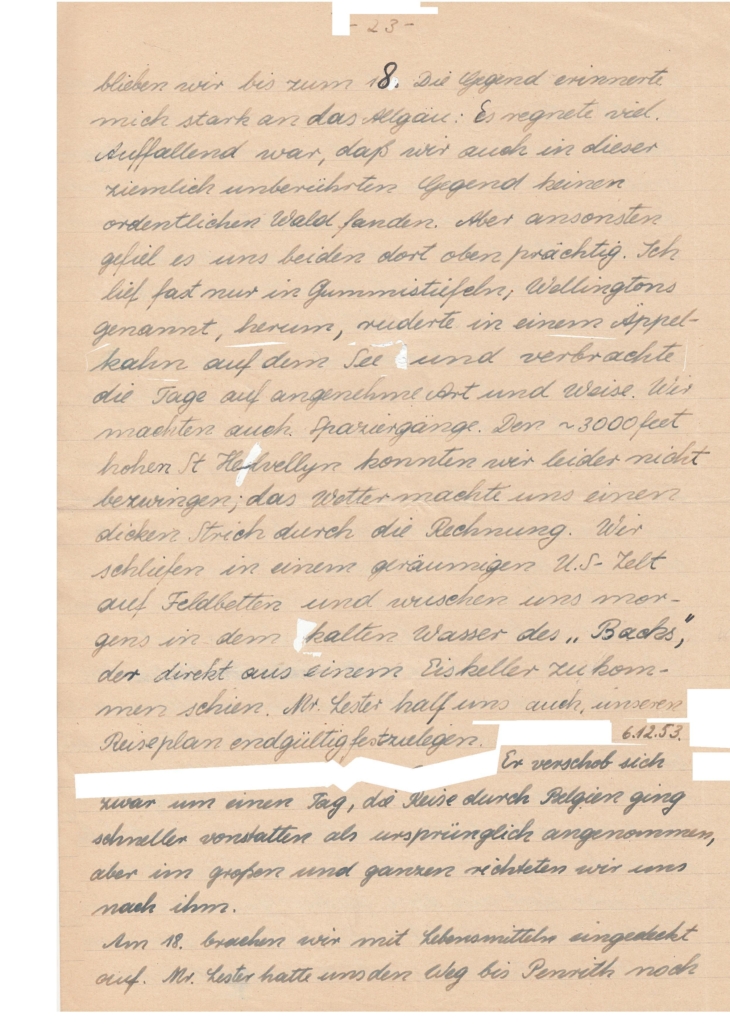 - 23 -
blieben wir bis zum 18. Die Gegend erinnerte
mich stark an das Allgäu: Es regnete viel.
Auffallend war, daß wir auch in dieser
ziemlich unberührten Gegend keinen
ordentlichen Wald fanden. Aber ansonsten
gefiel es uns beiden dort oben prächtig. Ich
lief fast nur in Gummistiefeln, Wellingtons
genannt, herum, ruderte in einem Äppel-
kahn auf dem See und verbrachte
die Tage auf angenehme Art und Weise. Wir
machten auch Spaziergänge. Den ~3000 feet
hohen St Helvellyn konnten wir leider nicht
bezwingen; das Wetter machte uns einen
dicken Strich durch die Rechnung. Wir
schliefen in einem geräumigen U.S-Zelt
auf Feldbetten und wuschen uns mor-
gens in dem kalten Wasser des „Backs",
der direkt aus einem Eiskeller zu kom-
men schien. Mr. Lester half uns auch, unseren
Reiseplan endgültig festzulegen. 6.12.53.
Er verschob sich
zwar um einen Tag, die Reise durch Belgien ging
schneller vonstatten als ursprünglich angenommen,
aber im großen und ganzen richteten wir uns
nach ihm.
Am 18. brachen wir mit Lebensmitteln eingedeckt
auf. Mr. Lester hatte uns den Weg bis Penrith noch